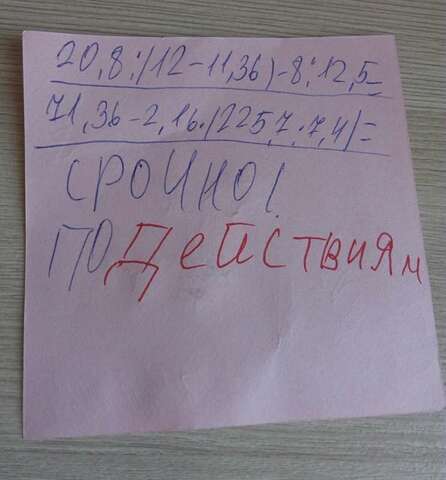 20,8:(12-11,36)-8:12,5=
71,36-2,16·(225,7·7,4)=
СРОЧНО!
ПО ДЕЙСТВИЯМ